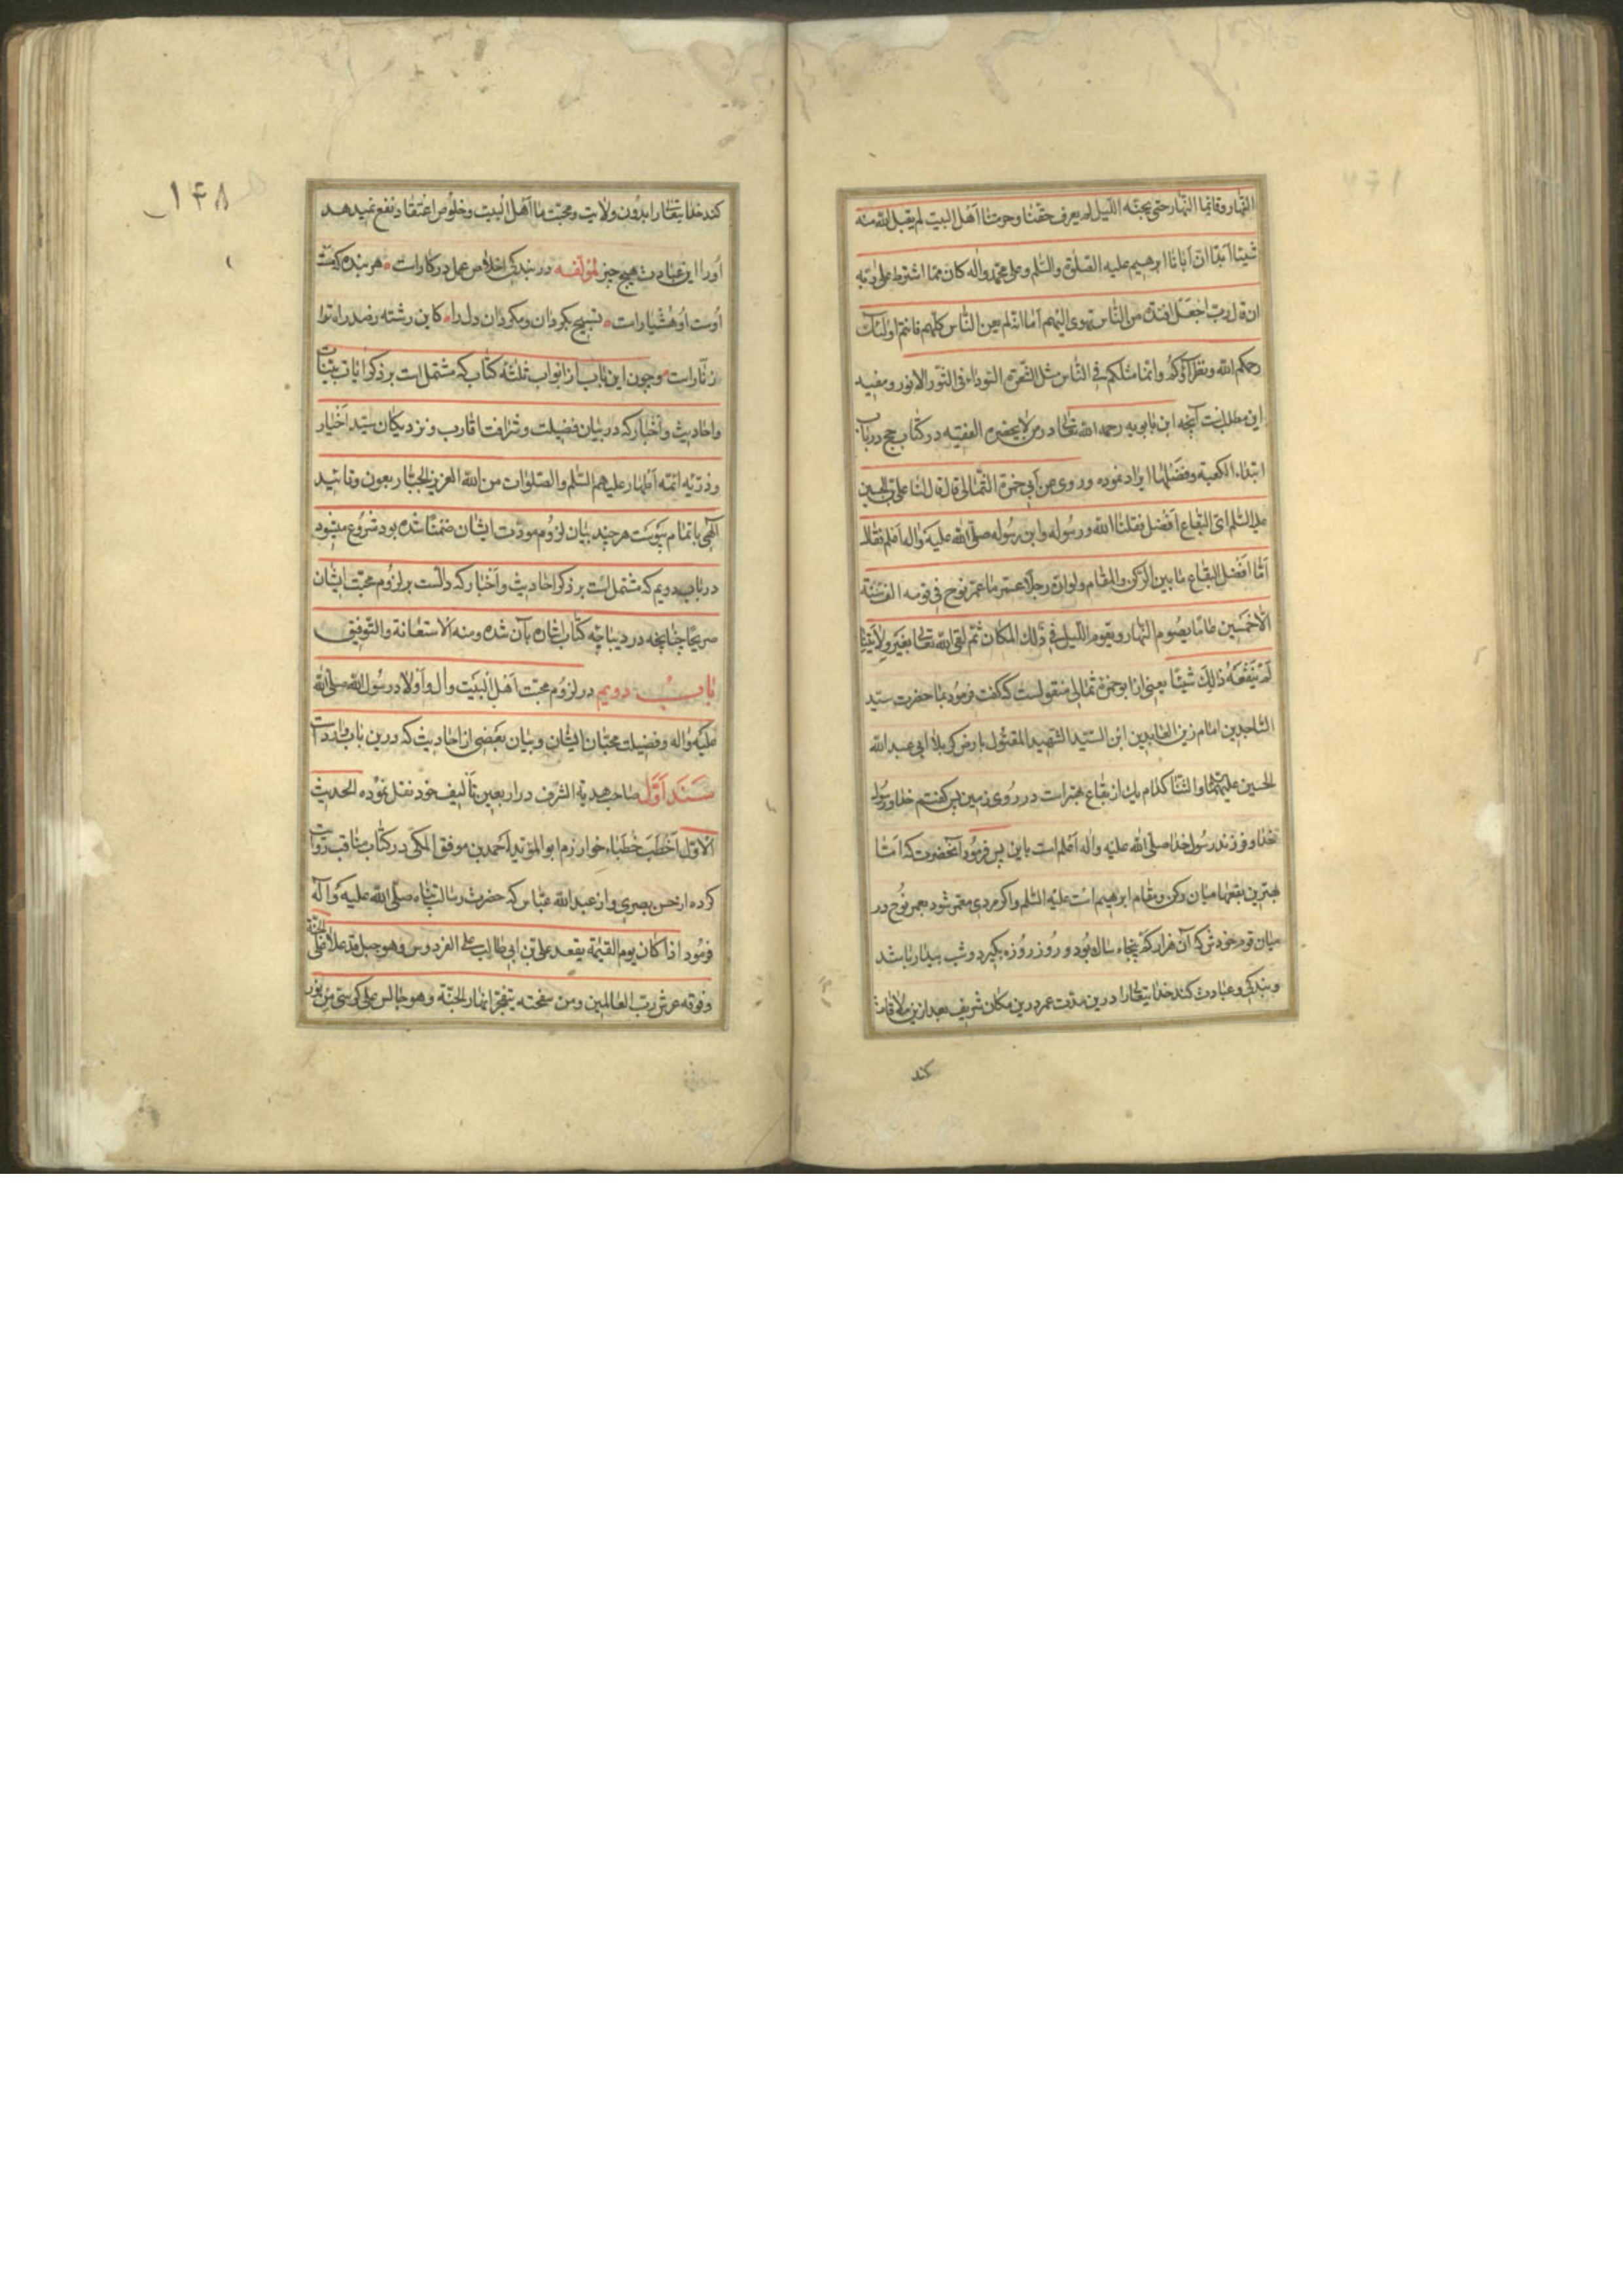 النهار وقائما النهار حتى يجنه الليل لم يعرف حقنا وحرمتنا اهل البيت لم يقبل الله منه
شيئا ابدا ان ابانا ابرهيم عليه الصلوة والسلم وعلى محمد واله كان مما اشترط على ربه
ان قال رب اجعل افئدة من الناس تهوى اليهم اما انه لم يعن الناس كلهم فانتم اولئك
رحمكم الله ونظراؤكم وانما مثلكم في الناس مثل الشعرة السوداء في الثور الانور ومفيد
اين مطلبست آنچه ابن بابويه رحمه الله تعالى در من لا يحضره الفقيه در كتاب حج در باب
ابتداء الكعبة وفضلها ايراد نموده وروى عن ابي حمزة الثمالي قال قال لنا على بن الحسين
عليه السلم اى البقاع افضل فقلنا الله ورسوله وابن رسوله صلى الله عليه واله اعلم فقال
اما افضل البقاع ما بين الركن والمقام ولو ان رجلا عمر ما عمر نوح في قومه الف سنة
الا خمسين عاما يصوم النهار ويقوم الليل في ذلك المكان ثم لقى الله تعالى بغير ولايتنا
لم ينفعه ذلك شيئا يعنى از ابو حمزه ثمالى منقولست كه گفت فرمود بما حضرت سيد
الساجدين امام زين العابدين ابن السيد الشهيد المقتول بارض كربلا ابى عبد الله
الحسين عليهما والثنا كدام يك از بقاع بهتر است در روى زمين پس گفتم خدا ورسول
خدا وفرزند رسول خدا صلى الله عليه واله اعلم است باين پس فرمود آنحضرت كه اما
بهترين بقعها ميان ركن ومقام ابرهيم است عليه السلم واگر مردى معمر شود بعمر نوح در
ميان قوم خودش كه آن هزار كم پنجاه سال بود و روز روزه بگيرد وشب بيدار باشد
وبندگى وعبادت كند خدايتعالى را درين مدت عمر درين مكان شريف بعد ازين ملاقات
كند
۱۴۸
كند خدايتعالى را بدون ولايت ومحبت ما اهل البيت وخلوص اعتقاد نفع نميدهد
اورا اين عبادت هيچ چيز لمؤلفه در بندگى اخلاص عمل در كار است هر بنده كه مست
اوست او هشيار است تسبيح بگردان ومگردان دل را كاين رشته رصد راه تو
زنار است وچون اين باب از ابواب ثلثه كتاب كه مشتمل است بر ذكر ايات بينات
واحاديث واخبار كه در بيان فضيلت وشرافت اقارب ونزديكان سيد اخيار
وذريه ائمه اطهار عليهم السلم والصلوات من الله العزيز الجبار بعون وتائيد
الهى باتمام پيوست هر چند بيان لزوم مودت ايشان ضمنا شده بود شروع ميشود
در باب دويم كه مشتمل است بر ذكر احاديث واخبار كه دالست بر لزوم محبت ايشان
صريحا چنانچه در ديباچه كتاب اشاره بآن شده ومنه الاستعانة والتوفيق
باب دويم در لزوم محبت اهل البيت وال واولاد رسول الله صلى الله
عليه واله وفضيلت محبان ايشان وبيان بعضى از احاديث كه درين باب وارد است
سند اول صاحب هدية الشرف در اربعين تأليف خود نقل نموده الحديث
الاول اخطب خطباء خوارزم ابو المؤيد احمد بن موفق المكى در كتاب مناقب روايت
كرده از حسن بصرى واز عبد الله عباس كه حضرت رسالت پناه صلى الله عليه واله
فرمود اذا كان يوم القيمة يقعد على بن ابي طالب على الفردوس وهو جبل قد علا على الجنة
وفوقه عرش رب العالمين ومن سفحته يتفجر انهار الجنة وهو جالس على كرسى من نور